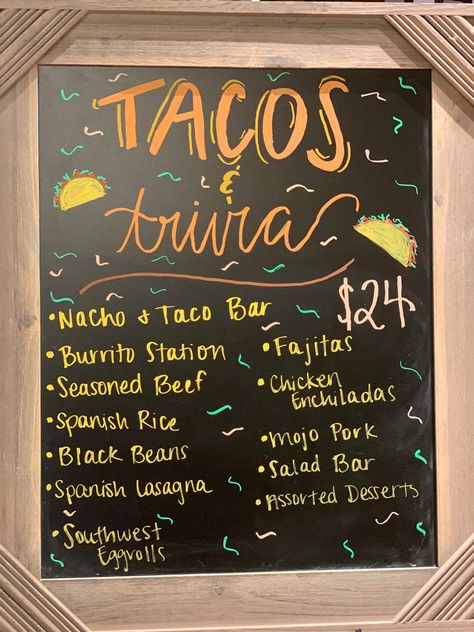 TACOS
&
trivia
$24
• Nacho & Taco Bar
• Burrito Station
• Seasoned Beef
• Spanish Rice
• Black Beans
• Spanish Lasagna
• Southwest
Eggrolls
• Fajitas
• Chicken
Enchiladas
• Mojo Pork
• Salad Bar
• Assorted Desserts